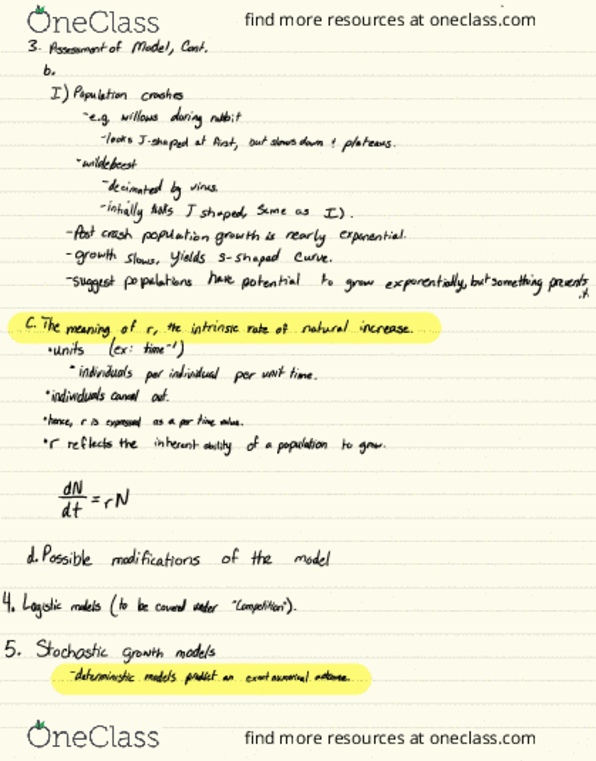 OneClass find more resources at oneclass.com
3. Assessment of Model, Cont.
b.
I) Population crashes
-e.g. willows during rabbit
-looks J-shaped at first, but slows down & plateaus.
-wildebeest
-decimated by virus.
-intially looks J shaped, same as I).
-Post crash population growth is nearly exponential.
-growth slows, yields s-shaped curve.
-suggest populations have potential to grow exponentially, but something prevents it
C. The meaning of r, the intrinsic rate of natural increase.
•units (ex: time⁻¹)
•individuals per individual per unit time.
•individuals cancel out.
•hence, r is expressed as a per time value.
•r reflects the inherent ability of a population to grow.
dN/dt = rN
d. Possible modifications of the model
4. Logistic models (to be covered under "Competition").
5. Stochastic growth models
-deterministic models predict an exact numerical outcome.
OneClass find more resources at oneclass.com